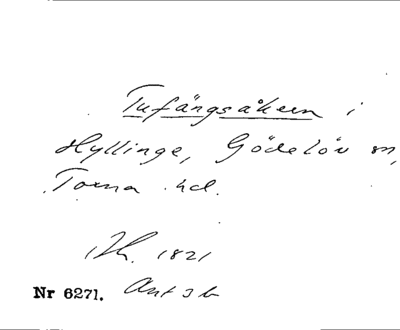 Tufängsåkern i
Hyllinge, Gödelöv sn,
Torna hd.
Ih. 1821
Nr 6271. Ant 3 b